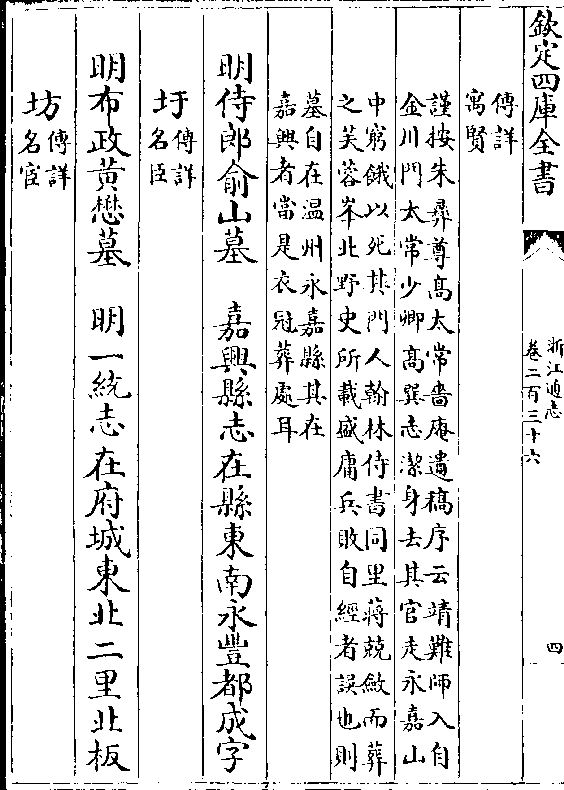 欽定四庫全書
浙江通志
卷二百三十六
四
傳詳
寓賢
謹按朱彞尊髙太常嗇庵遺稿序云靖難師入自
金川門太常少卿髙巽志潔身去其官走永嘉山
中窮餓以死其門人翰林侍書同里蔣兢斂而葬
之芙蓉峯北野史所載盛庸兵敗自經者誤也則
墓自在温州永嘉縣其在
嘉興者當是衣冠葬處耳
明侍郎俞山墓　嘉興縣志在縣東南永豐都成字
圩
傳詳
名臣
明布政黄懋墓　明一統志在府城東北二里北板
坊
傳詳
名宦